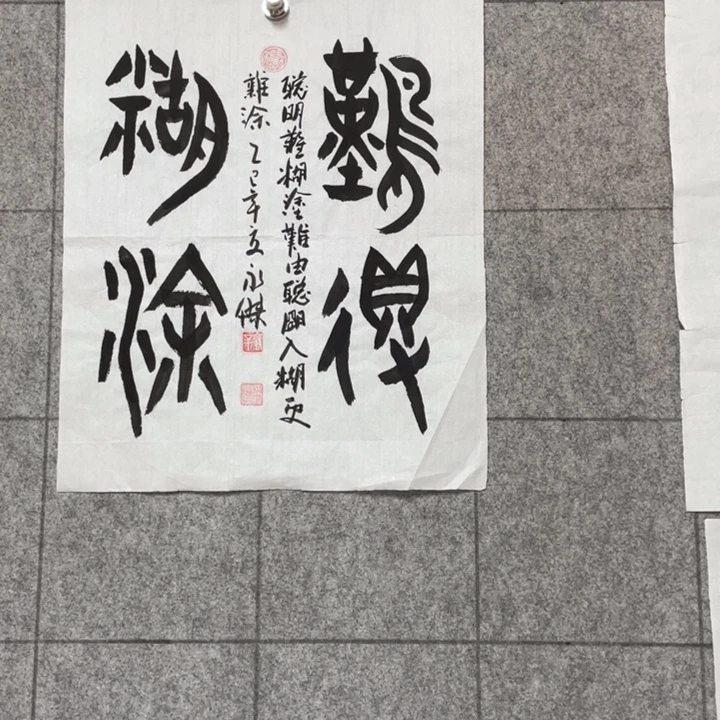 難得
糊涂
聰明難糊塗難由聰明入糊更
難涂 乙巳 永傑